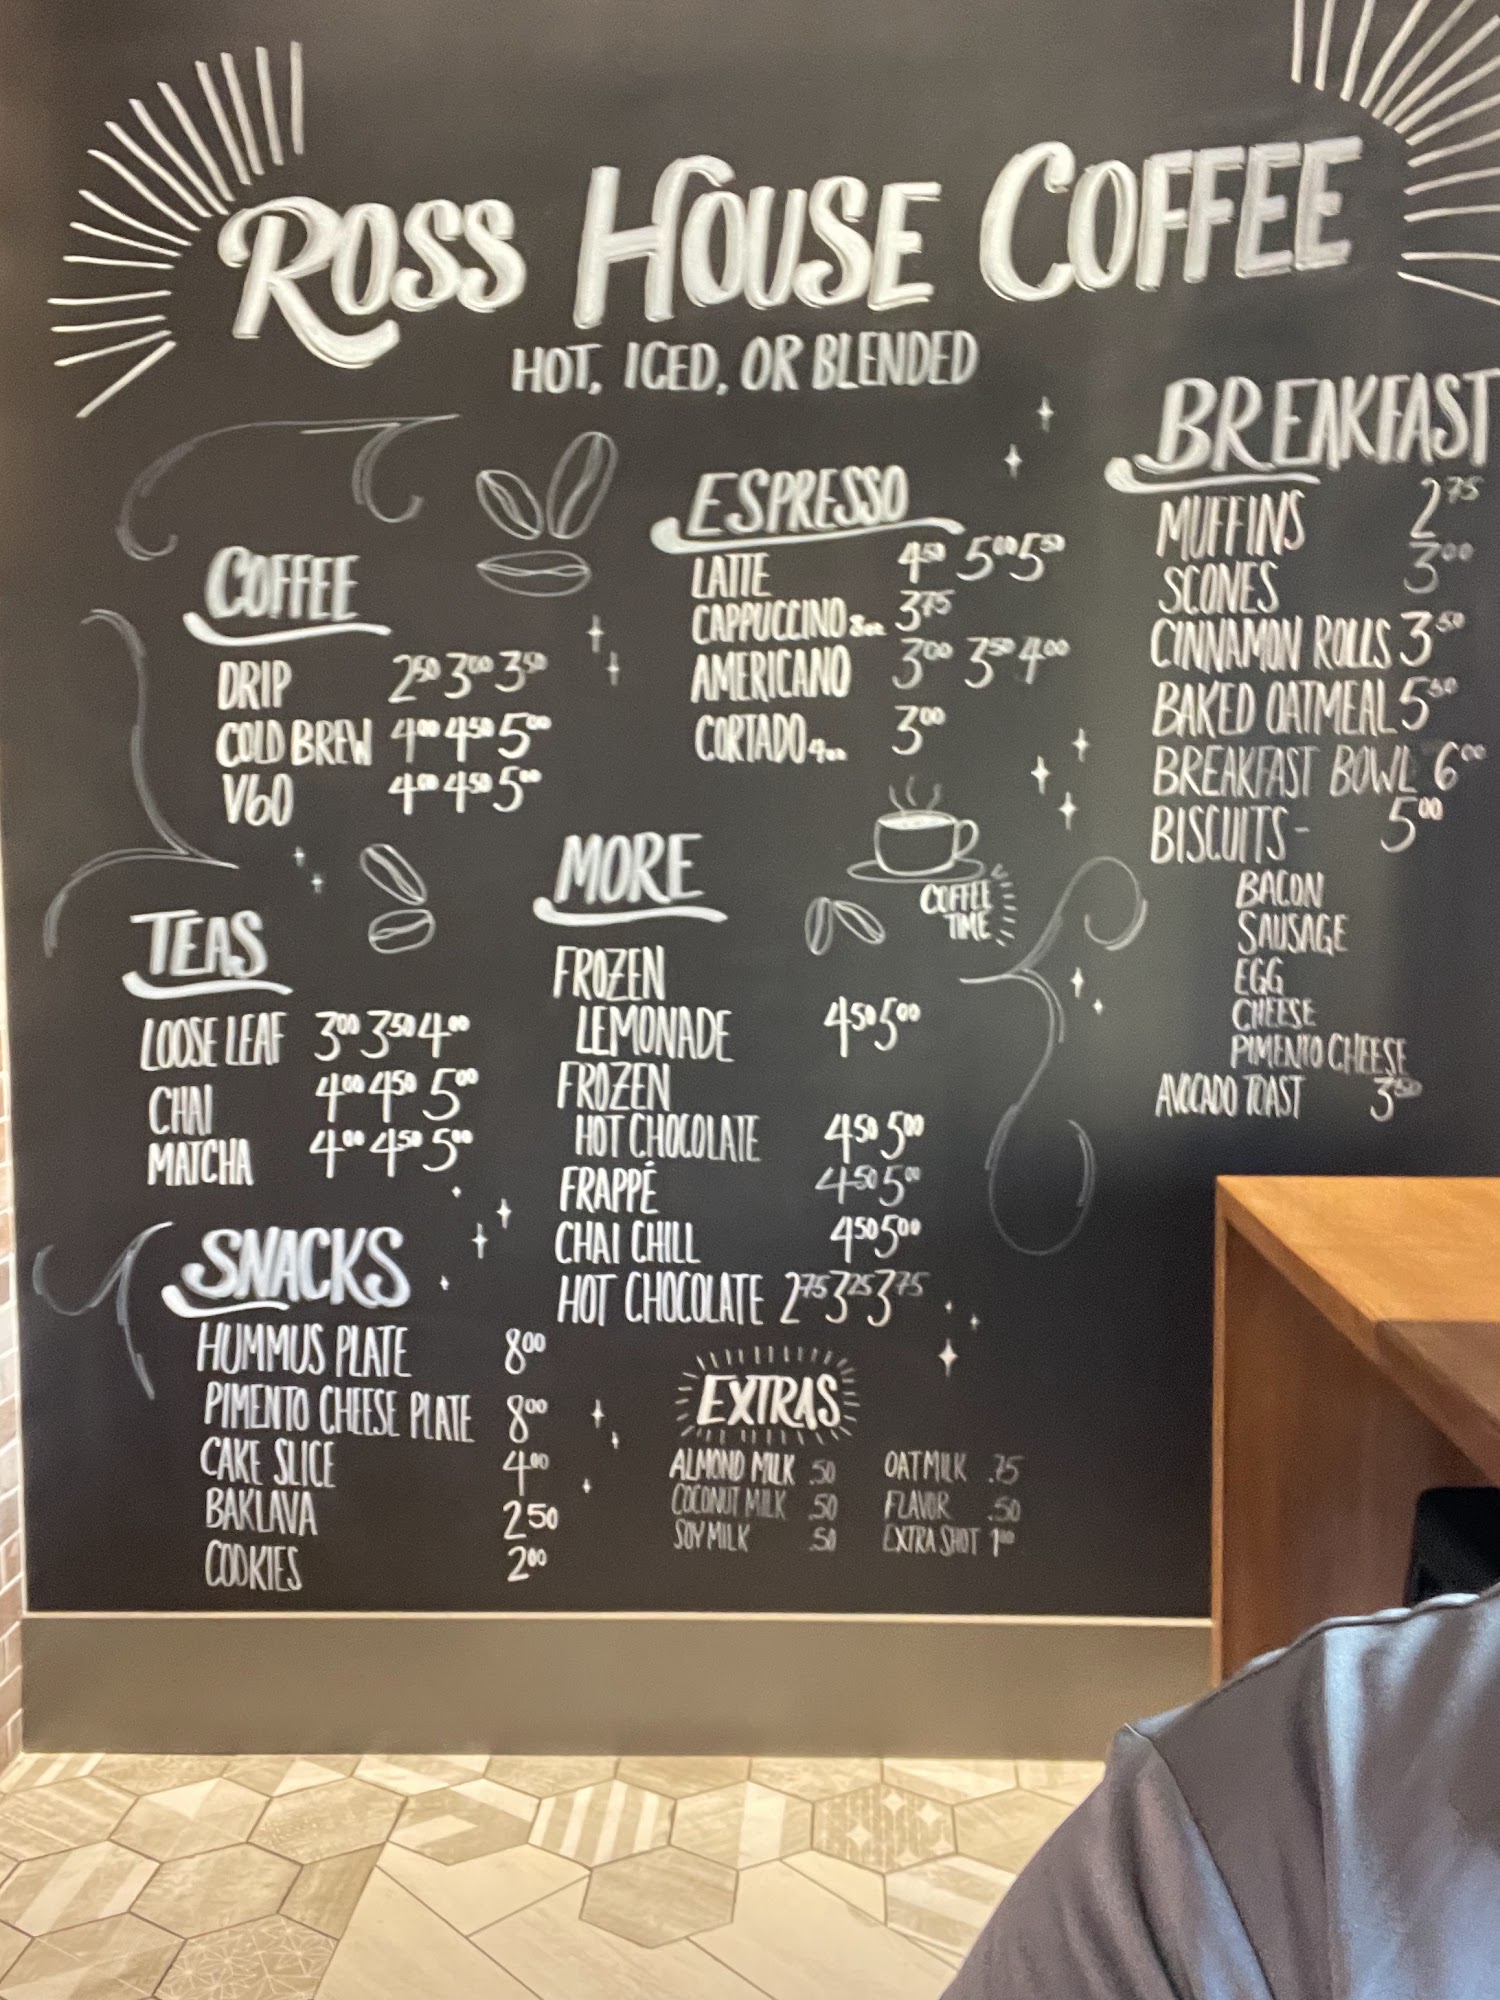 ROSS HOUSE COFFEE
HOT, ICED, OR BLENDED
COFFEE
DRIP 2.50 3.00 3.50
COLD BREW 4.00 4.50 5.00
V60 4.00 4.50 5.00
ESPRESSO
LATTE 4.50 5.00 5.50
CAPPUCCINO 8oz. 3.75
AMERICANO 3.00 3.50 4.00
CORTADO 4oz. 3.00
BREAKFAST
MUFFINS 2.75
SCONES 3.00
CINNAMON ROLLS 3.50
BAKED OATMEAL 5.50
BREAKFAST BOWL 6.00
BISCUITS - 5.00
BACON
SAUSAGE
EGG
CHEESE
PIMENTO CHEESE
AVOCADO TOAST 3.50
COFFEE
TIME
TEAS
LOOSE LEAF 3.00 3.50 4.00
CHAI 4.00 4.50 5.00
MATCHA 4.00 4.50 5.00
MORE
FROZEN
LEMONADE 4.50 5.00
FROZEN
HOT CHOCOLATE 4.50 5.00
FRAPPÉ 4.50 5.00
CHAI CHILL 4.50 5.00
HOT CHOCOLATE 2.75 3.25 3.75
SNACKS
HUMMUS PLATE 8.00
PIMENTO CHEESE PLATE 8.00
CAKE SLICE 4.00
BAKLAVA 2.50
COOKIES 2.00
EXTRAS
ALMOND MILK .50 OAT MILK .75
COCONUT MILK .50 FLAVOR .50
SOY MILK .50 EXTRA SHOT 1.00